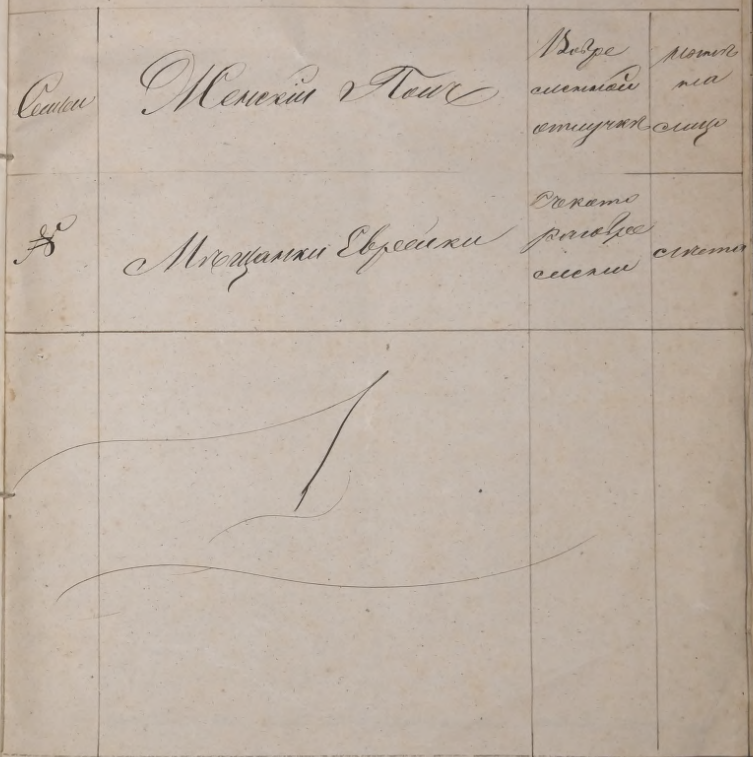 Семьи
Женскій Полъ
Вовре
менной
отлучкѣ
на
лицо
№
Мѣщанки Еврейки
Съкато
раговре
мени
лѣта